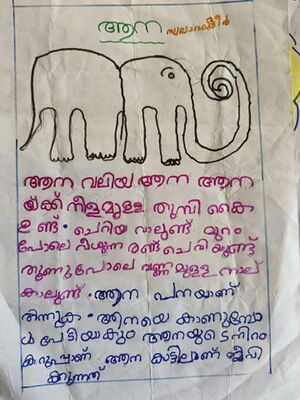 ആന
ആന വലിയ ആന ആന
യ്ക്ക് നീളമുള്ള തുമ്പി കൈ
ഉണ്ട്. ചെറിയ വാലുണ്ട് മുറം
പോലെ വീശുന്ന രണ്ട് ചെവിയുണ്ട്
തൂണുപോലെ വണ്ണമുള്ള നാല്
കാലുണ്ട്. ആന പനയാണ്
തിന്നുക. ആനയെ കാണുമ്പോ
ൾ പേടിയാകും ആനയുടെ നിറം
കറുപ്പാണ്. ആന കാട്ടിലാണ് ജീവി
ക്കുന്നത്